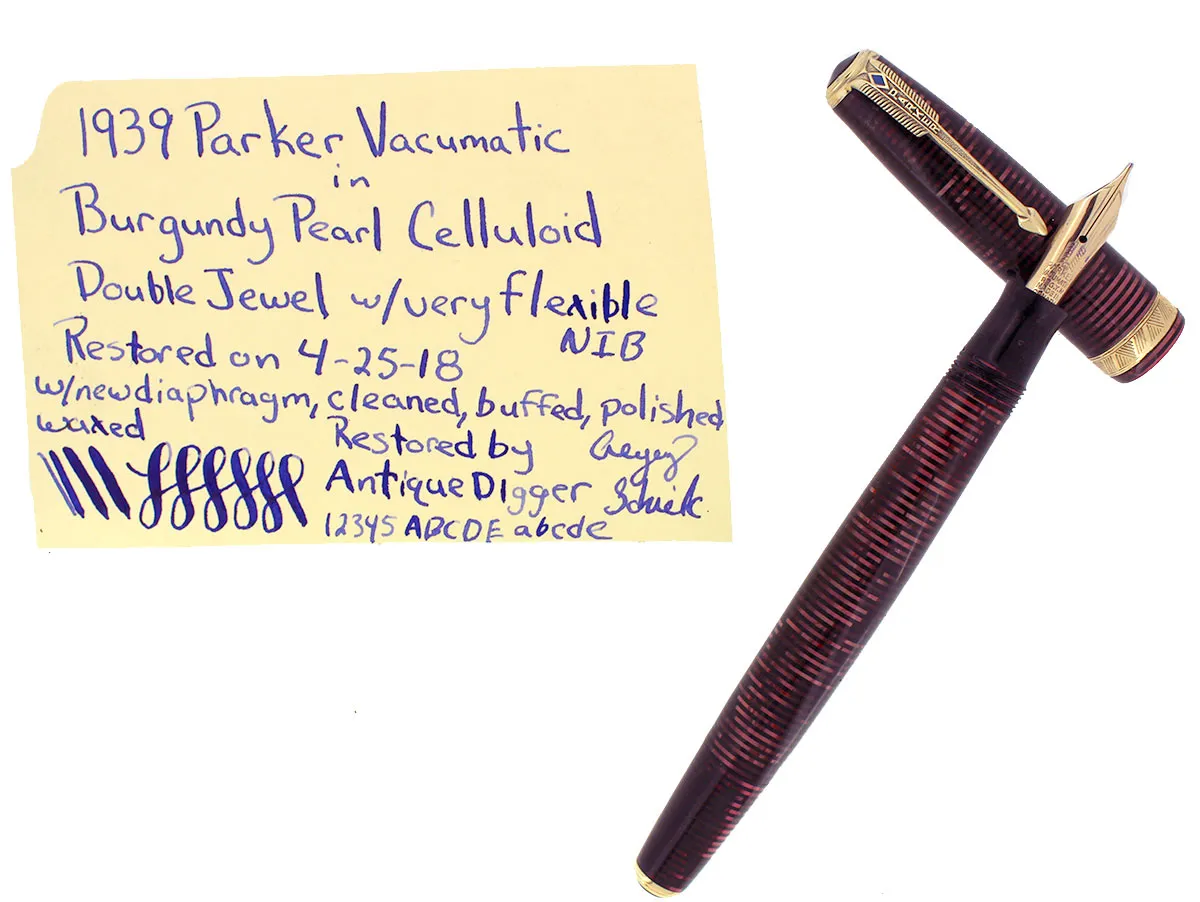 1939 Parker Vacumatic
in
Burgundy Pearl Celluloid
Double Jewel w/very flexible
NIB
Restored on 4-25-18
w/new diaphragm, cleaned, buffed, polished,
waxed
Restored by
Antique Digger
12345 ABCDE abcde
PARKER